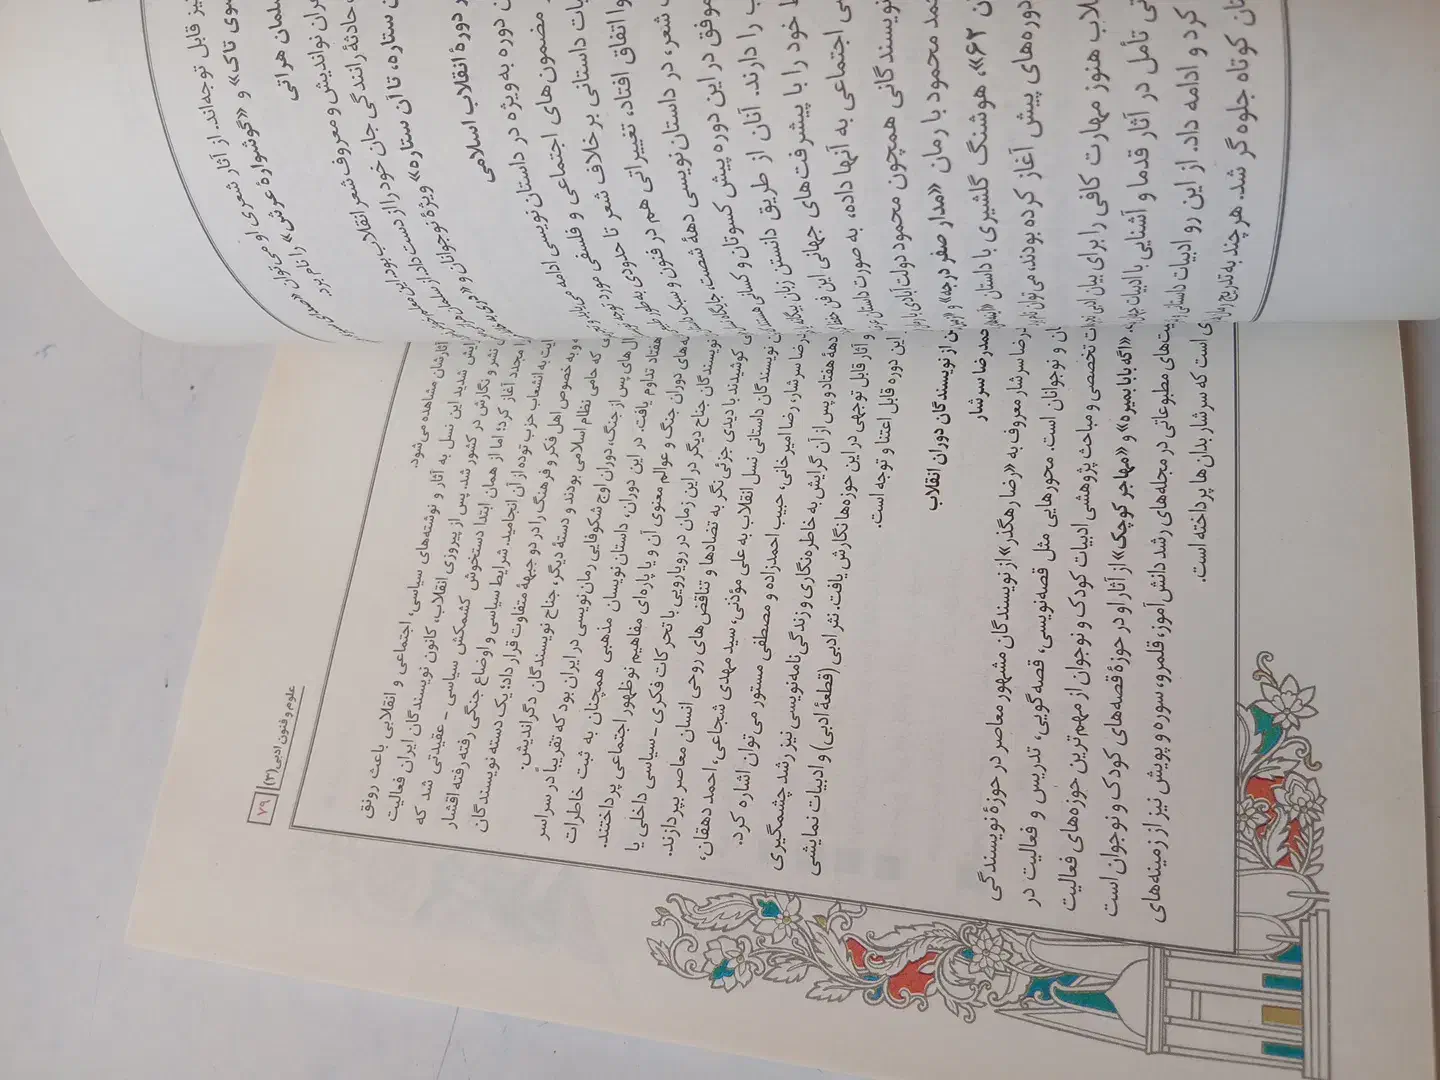 علوم و فنون ادبی (۳)
۷۹
آثارشان مشاهده می‌شود.
نوشته‌های سیاسی، اجتماعی و انقلابی باعث رونق
شدید این نسل به آثار و
نشر و نگارش در کشور شد. پس از پیروزی انقلاب، کانون نویسندگان ایران فعالیت
مجدد آغاز کرد؛ اما از همان ابتدا دستخوش کشمکش سیاسی - عقیدتی شد که
به انشعاب حزب توده از آن انجامید. شرایط سیاسی و اوضاع جنگی رفته رفته اقشار
و به خصوص اهل فکر و فرهنگ را در دو جبههٔ متفاوت قرار داد؛ یک دسته نویسندگان
که حامی نظام اسلامی بودند و دستهٔ دیگر، جناح نویسندگان دگراندیش.
های پس از جنگ، دوران اوج شکوفایی رمان‌نویسی در ایران بود که تقریباً در سراسر
هفتاد تداوم یافت. در این دوران، داستان‌نویسان مذهبی همچنان به ثبت خاطرات
های دوران جنگ و عوالم معنوی آن و یا پاره‌ای مفاهیم نوظهور اجتماعی پرداختند.
نویسندگان جناح دیگر در این زمان در رویارویی با تحرکات فکری - سیاسی داخلی یا
کوشیدند با دیدی جزئی‌نگر به تضادها و تناقض‌های روحی انسان معاصر بپردازند.
نویسندگان داستانی نسل انقلاب به علی مؤذنی، سید مهدی شجاعی، احمد دهقان،
رضا سرشار، رضا امیرخانی، حبیب احمدزاده و مصطفی مستور می‌توان اشاره کرد.
دههٔ هفتاد و پس از آن گرایش به خاطره‌نگاری و زندگی‌نامه‌نویسی نیز رشد چشمگیری
و آثار قابل توجهی در این حوزه‌ها نگارش یافت. نثر ادبی (قطعهٔ ادبی) و ادبیات نمایشی
این دوره قابل اعتنا و توجه است.
از نویسندگان دوران انقلاب
محمدرضا سرشار
رضا سرشار معروف به «رضا رهگذر» از نویسندگان مشهور معاصر در حوزهٔ نویسندگی
و نوجوانان است. محورهایی مثل قصه‌نویسی، قصه‌گویی، تدریس و فعالیت در
تخصصی و مباحث پژوهشی ادبیات کودک و نوجوان از مهم‌ترین حوزه‌های فعالیت
«اگه بابا بمیره» و «مهاجر کوچک» از آثار او در حوزهٔ قصه‌های کودک و نوجوان است
های مطبوعاتی در مجله‌های رشد دانش‌آموز، قلمرو، سوره و پویش نیز از زمینه‌های
است که سرشار بدان‌ها پرداخته است.
قابل توجه‌اند. از آثار شعری او می‌توان
تاک» و «گوشوارهٔ عرش» را نام برد.
سلمان هراتی
نواندیش و معروف شعر انقلاب بود.
حادثهٔ رانندگی جان خود را از دست داد.
ستاره، تا آن ستاره» ویژهٔ نوجوانان و
دورهٔ انقلاب اسلامی
دوره به ویژه در داستان‌نویسی ادامه
مضمون‌های اجتماعی و فلسفی مورد
داستانی برخلاف شعر تا حدودی به
اتفاق افتاد، تغییراتی هم در فنون و
شعر، در داستان‌نویسی دههٔ شصت،
موفق در این دوره پیش کسوتان و کسانی
را دارند. آنان از طریق دانستن زبان
خود را با پیشرفت‌های جهانی این فن
اجتماعی به آنها داده، به صورت داستان
نویسندگانی همچون محمود دولت آبادی با
محمود با رمان «مدار صفر درجه» و
۶۲»، هوشنگ گلشیری با داستان
دوره‌های پیش آغاز کرده بودند، می‌توان
هنوز مهارت کافی را برای بیان
تأمل در آثار قدما و آشنایی با ادبیات
کرد و ادامه داد. از این رو ادبیات داستانی
کوتاه جلوه‌گر شد. هر چند به تدریج